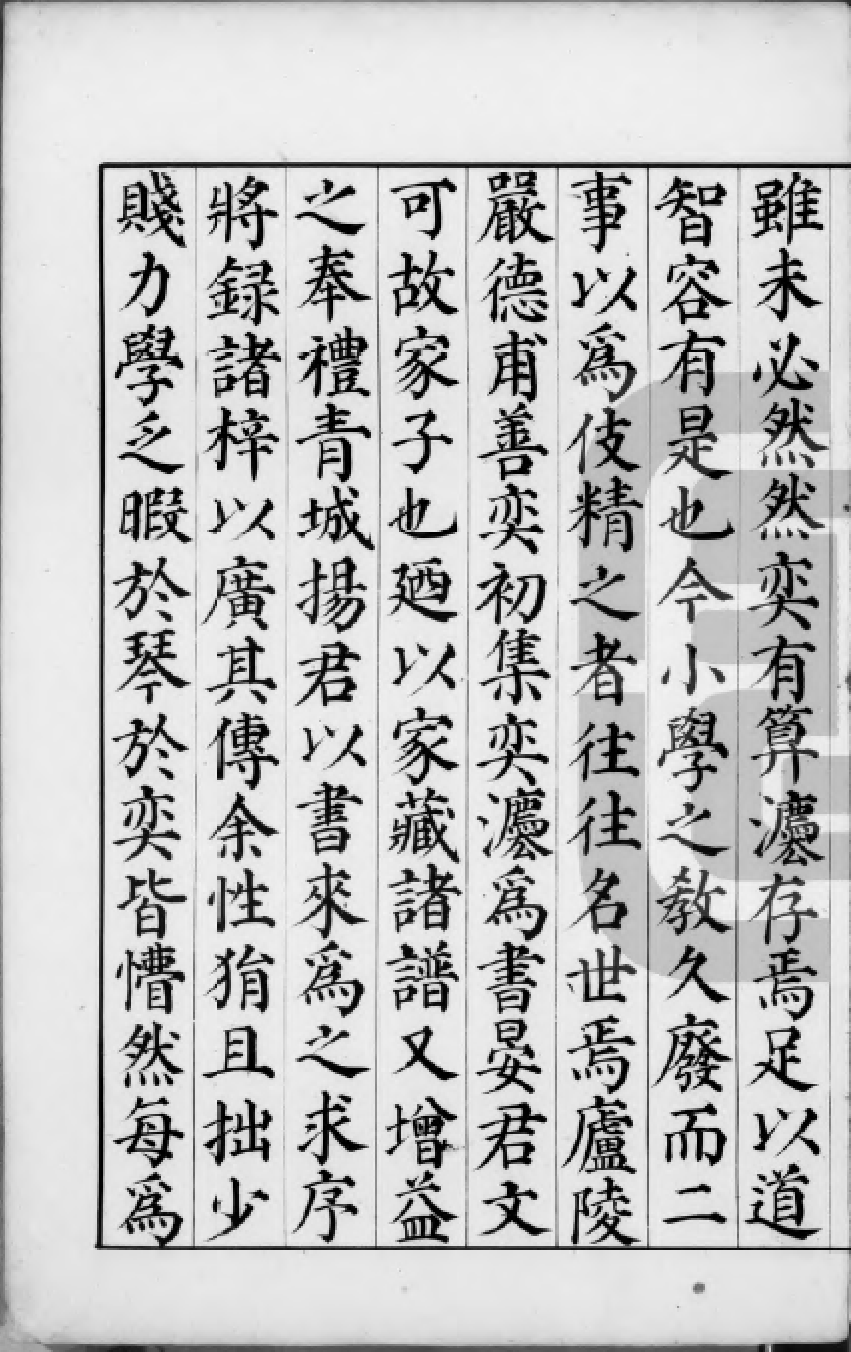 雖未必然然奕有算灋存焉足以道
智容有是也今小學之教久廢而二
事以爲伎精之者往往名世焉廬陵
嚴德甫善奕初集奕灋爲書晏君文
可故家子也廼以家藏諸譜又增益
之奉禮青城揚君以書來爲之求序
將録諸梓以廣其傳余性狷且拙少
賤力學乏暇於琴於奕皆懵然每爲